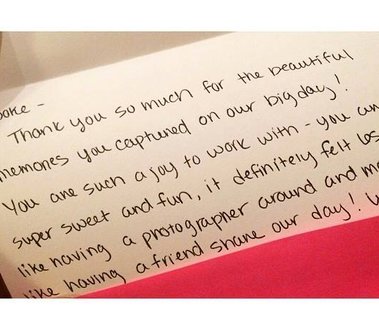 ooke -
Thank you so much for the beautiful
memories you captured on our big day!
You are such a joy to work with - you are
super sweet and fun, it definitely felt less
like having a photographer around and
like having a friend share our day!